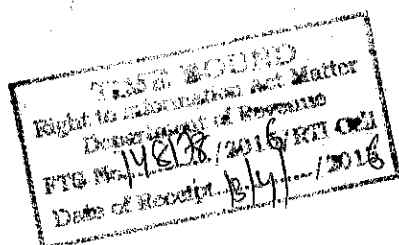 Right to Information Act Matter
Department of Revenue
FTS No. 148178 /2016/RTI Cell
Date of Receipt 13/4/2016